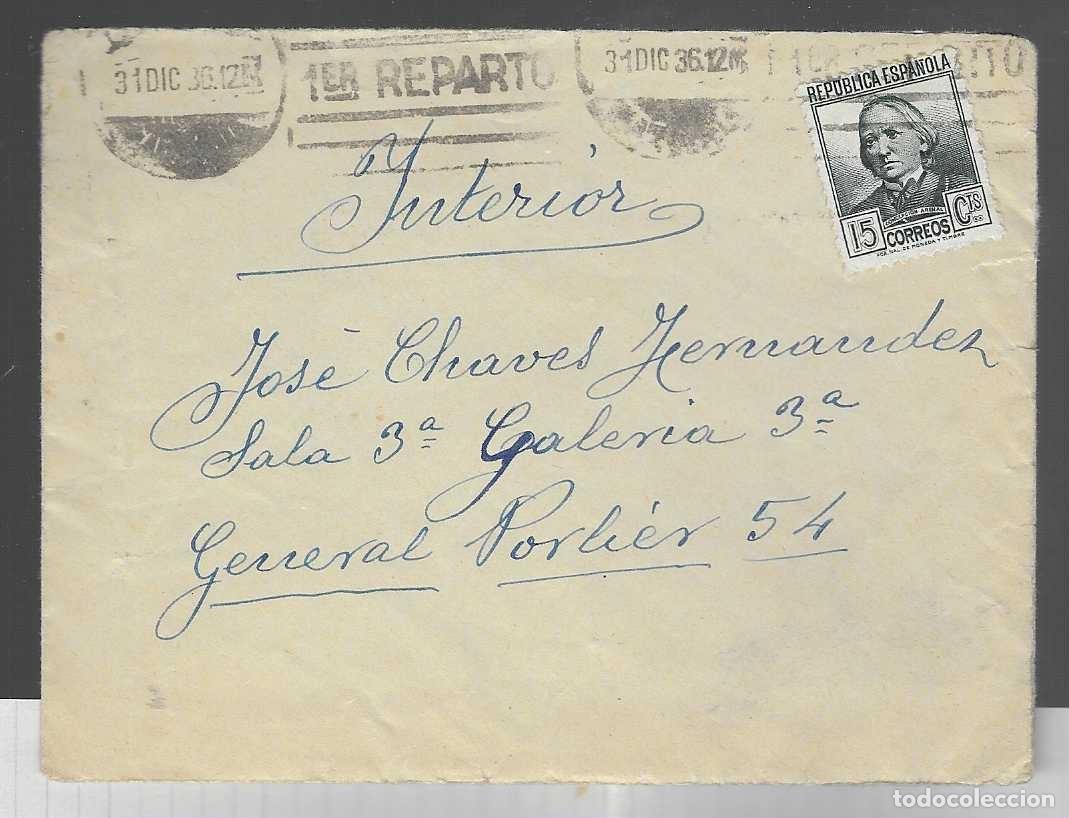 31 DIC 36.12M
1ER REPARTO
31 DIC 36.12M
REPÚBLICA ESPAÑOLA
CONCEPCIÓN ARENAL
15 CORREOS CTS
Interior
José Chaves Hernandez
Sala 3ª Galeria 3ª
General Porlier 54
todocoleccion